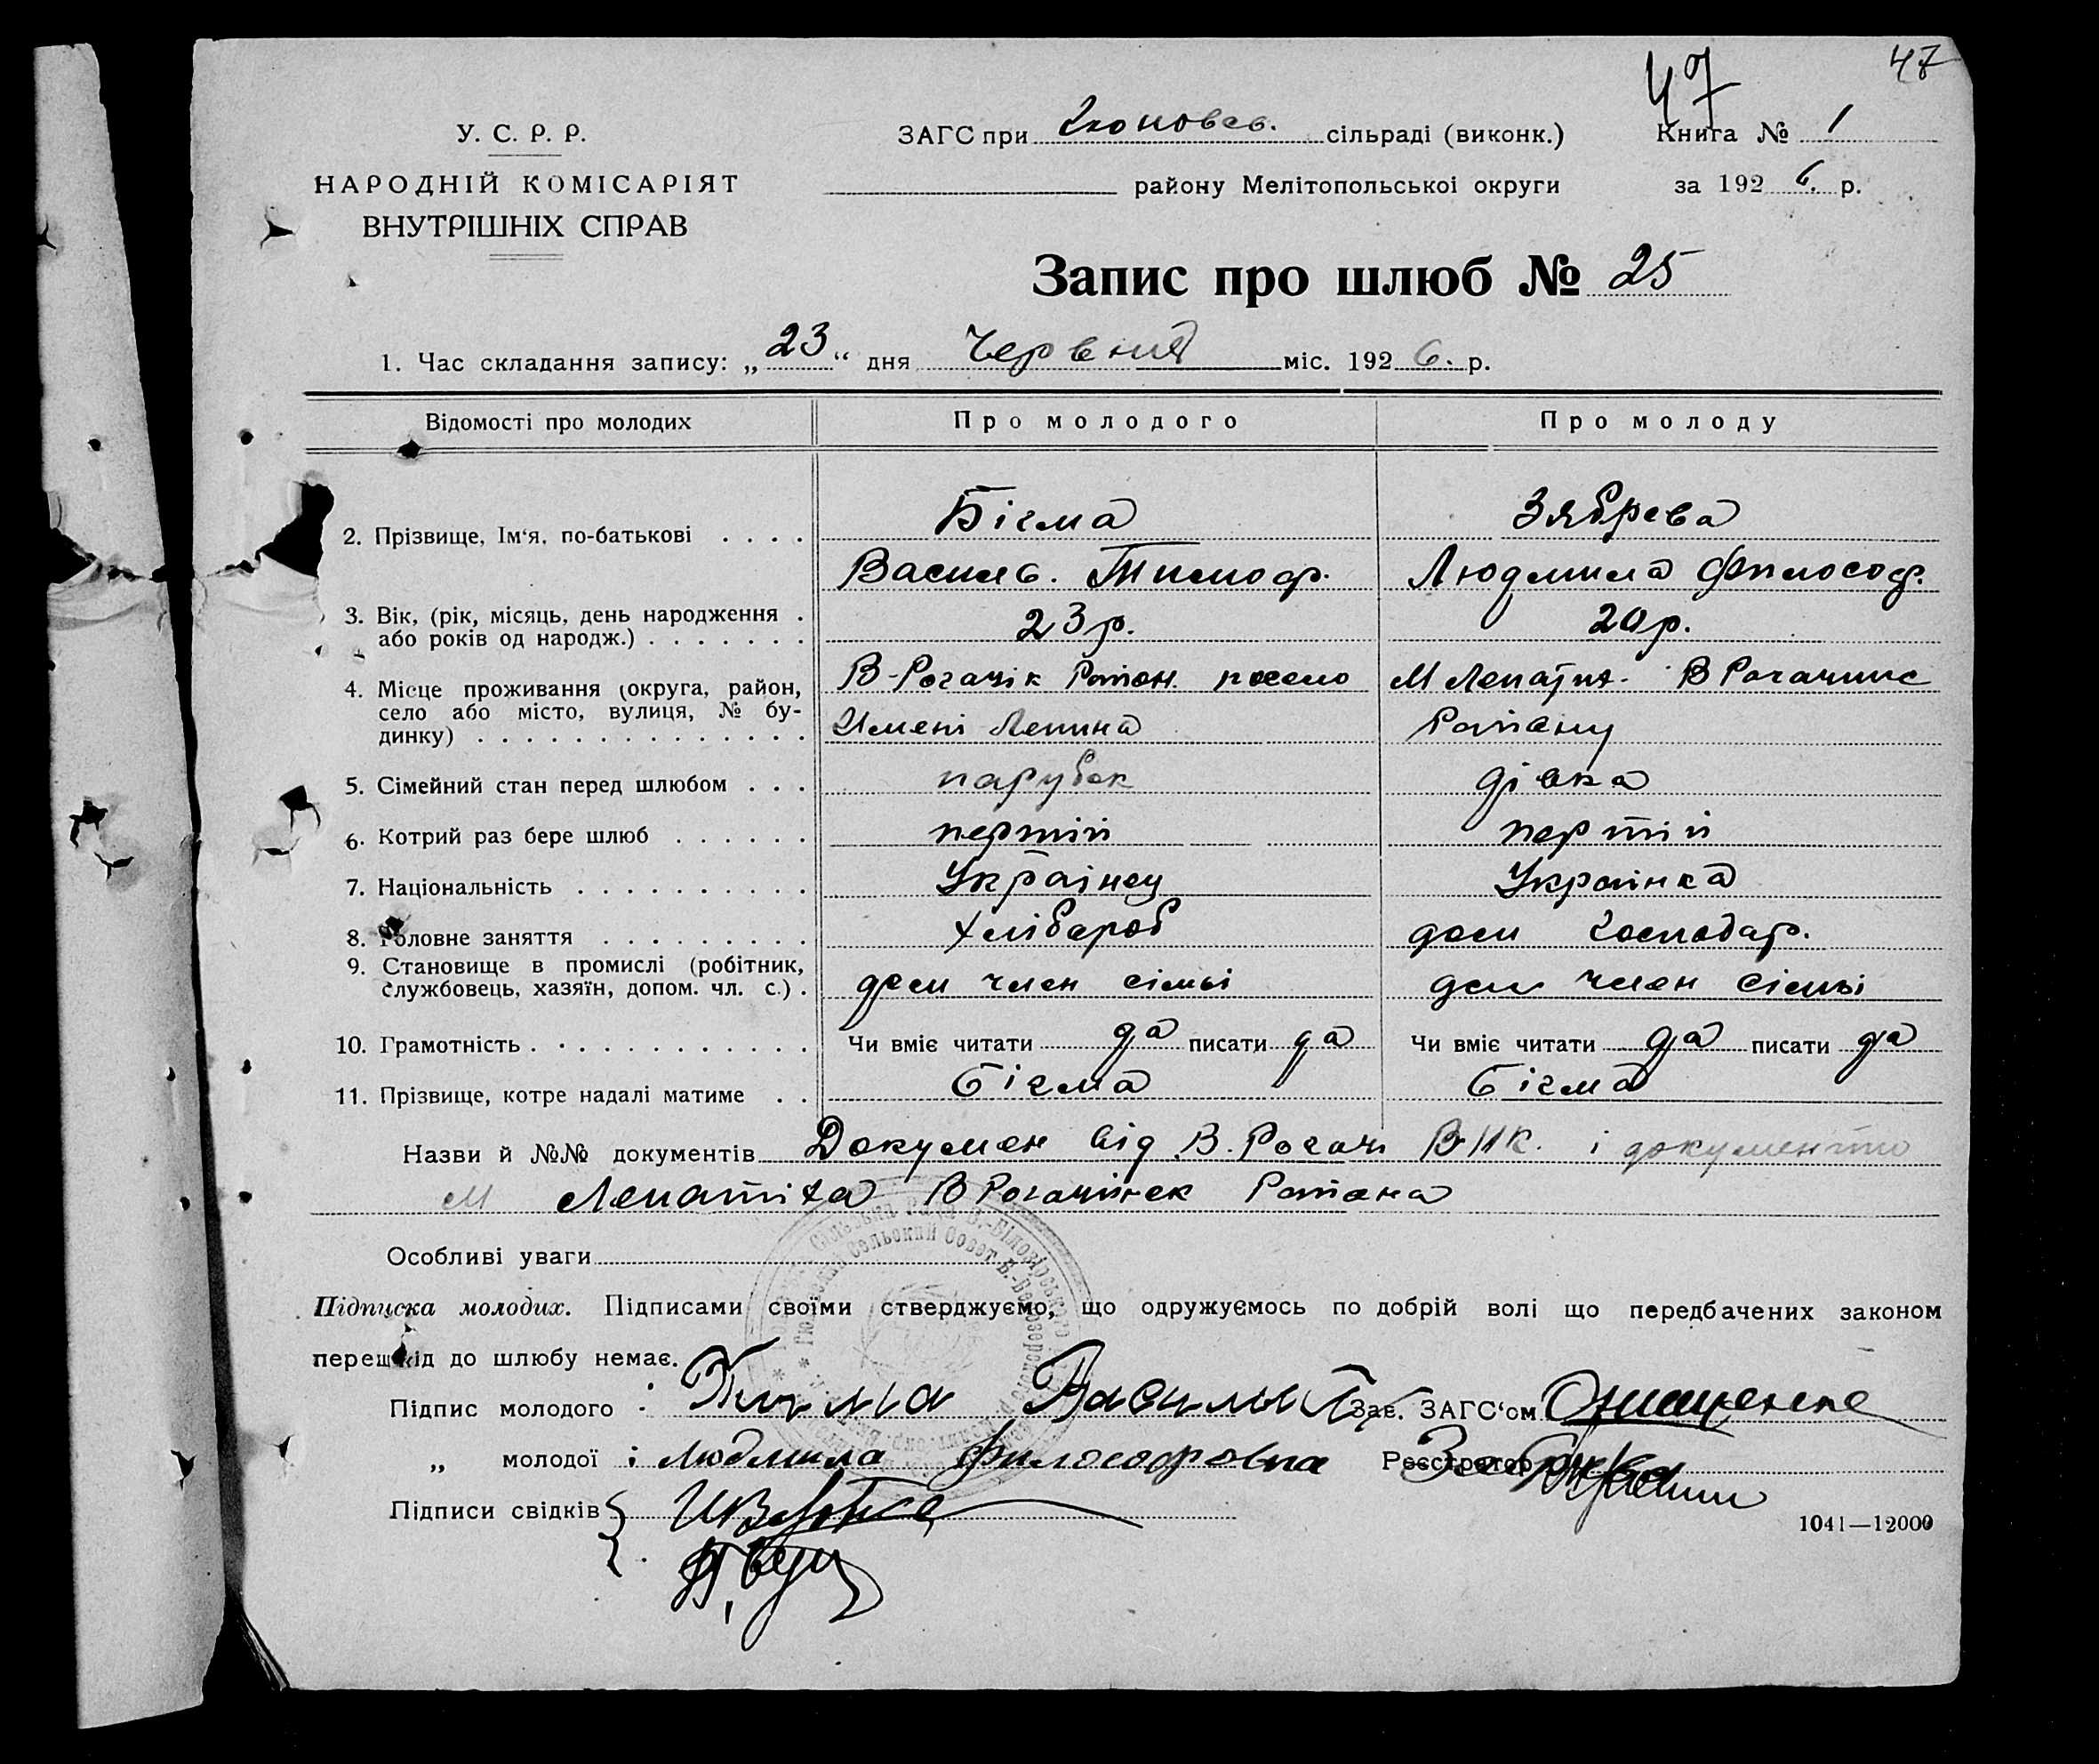 47
47
У. С. Р. Р.
НАРОДНІЙ КОМІСАРІЯТ
ВНУТРІШНІХ СПРАВ
ЗАГС при сільраді (виконк.)
Книга № 1
району Мелітопольської округи
за 1926. р.
Запис про шлюб № 25
1. Час складання запису: „23“ дня Червня міс. 1926. р.
Відомості про молодих
Про молодого
Про молоду
2. Прізвище, Ім‘я, по-батькові . . . .
Бігма
Зябрева
Василь. Тимоф.
Людмила Философ.
3. Вік, (рік, місяць, день народження .
або років од народж.) . . . . . . .
23 р.
20 р.
4. Місце проживання (округа, район,
село або місто, вулиця, № бу-
динку) . . . . . . . . . . . . . .
В-Рогачік
Имені Ленина
М
5. Сімейний стан перед шлюбом . . .
парубок
дівка
6. Котрий раз бере шлюб . . . . . .
першій
першій
7. Національність . . . . . . . . . .
Українец
Українка
8. Головне заняття . . . . . . . . .
хлібороб
дом господар.
9. Становище в промислі (робітник,
службовець, хазяїн, допом. чл. с.) .
член сімьі
член сімьі
10. Грамотність . . . . . . . . . . . .
Чи вміє читати да писати да
Чи вміє читати да писати да
11. Прізвище, котре надалі матиме . .
Бігма
Бігма
Назви й №№ документів Докумен від В. Рогач ВИК. і документы
М В Рогачинск
Особливі уваги
Підписка молодих. Підписами своїми стверджуємо, що одружуємось по добрій волі що передбачених законом
перешкід до шлюбу немає.
Підпис молодого : Василий
Зав. ЗАГС‘ом Онищенко
„ молодої : Людмила Философовна
Реєстратор
Підписи свідків
1041—12000